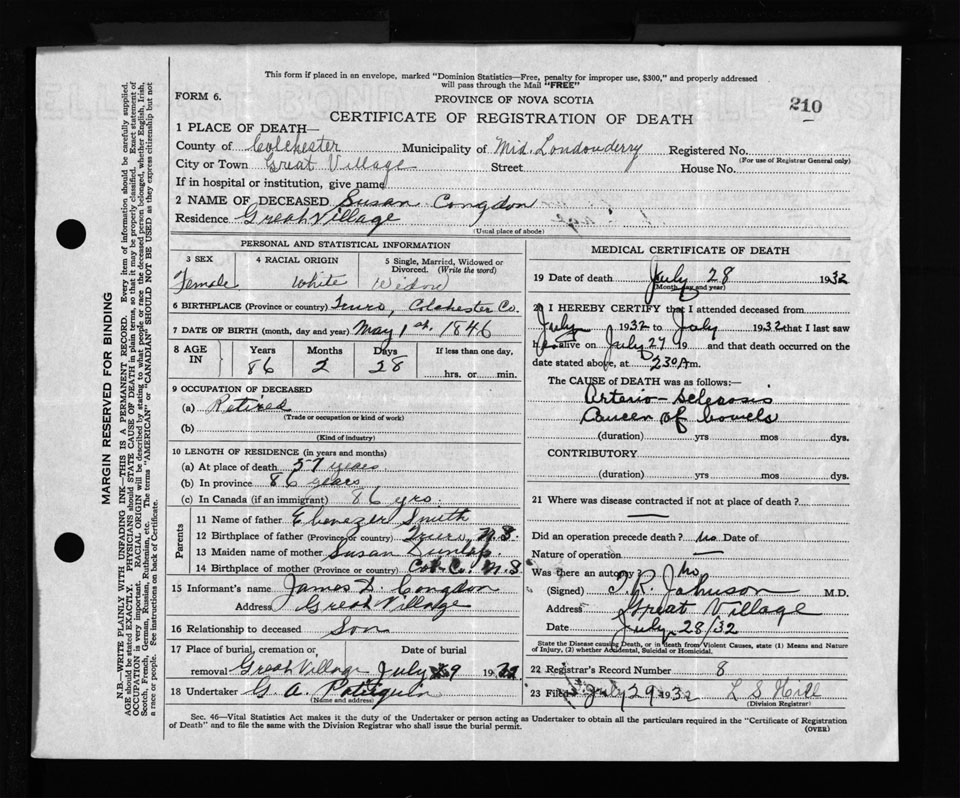 This form if placed in an envelope, marked "Dominion Statistics—Free, penalty for improper use, $300," and properly addressed
will pass through the Mail "FREE"
FORM 6.
PROVINCE OF NOVA SCOTIA
210
CERTIFICATE OF REGISTRATION OF DEATH
1 PLACE OF DEATH—
County of Colchester Municipality of Mid. Londonderry Registered No.
(For use of Registrar General only)
City or Town Great Village Street House No.
If in hospital or institution, give name
2 NAME OF DECEASED Susan Congdon
Residence Great Village
(Usual place of abode)
PERSONAL AND STATISTICAL INFORMATION
3 SEX 4 RACIAL ORIGIN 5 Single, Married, Widowed or
Divorced. (Write the word)
Female White Widow
6 BIRTHPLACE (Province or country) Truro, Colchester Co.
7 DATE OF BIRTH (month, day and year) May 1st, 1846
8 AGE IN Years Months Days If less than one day,
86 2 28 hrs. or min.
9 OCCUPATION OF DECEASED
(a) Retired
(Trade or occupation or kind of work)
(b)
(Kind of industry)
10 LENGTH OF RESIDENCE (in years and months)
(a) At place of death 57 years
(b) In province 86 years
(c) In Canada (if an immigrant) 86 yrs.
Parents
11 Name of father Ebenezer Smith
12 Birthplace of father (Province or country) Truro, N.S.
13 Maiden name of mother Susan Dunlap.
14 Birthplace of mother (Province or country) Col. Co. N.S
15 Informant's name James D. Congdon
Address Great Village
16 Relationship to deceased Son
17 Place of burial, cremation or Date of burial
removal Great Village July 29 19
18 Undertaker G. A. Patriquin
(Name and address)
MEDICAL CERTIFICATE OF DEATH
19 Date of death July 28 1932
(Month, day and year)
20 I HEREBY CERTIFY that I attended deceased from
July 1932 to July 1932 that I last saw
her alive on July 27 19 and that death occurred on the
date stated above, at 230 A m.
The CAUSE of DEATH was as follows:
Arterio-Sclerosis
Cancer of bowels
(duration) yrs mos dys.
CONTRIBUTORY
(duration) yrs mos dys.
21 Where was disease contracted if not at place of death?
Did an operation precede death? no Date of
Nature of operation —
Was there an autopsy? No
(Signed) T.R. Johnson M.D.
Address Great Village
Date July 28/32
State the Disease causing Death, or in death from Violent Causes, state (1) Means and Nature
of Injury, (2) whether Accidental, Suicidal or Homicidal.
22 Registrar's Record Number 8
23 Filed July 29 1932 L S Hill
(Division Registrar)
Sec. 46—Vital Statistics Act makes it the duty of the Undertaker or person acting as Undertaker to obtain all the particulars required in the "Certificate of Registration
of Death" and to file the same with the Division Registrar who shall issue the burial permit.
(OVER)
MARGIN RESERVED FOR BINDING
N.B.—WRITE PLAINLY WITH UNFADING INK—THIS IS A PERMANENT RECORD. Every item of information should be carefully supplied.
AGE should be stated EXACTLY. PHYSICIANS should STATE CAUSE OF DEATH in plain terms, so that it may be properly classified. Exact statement of
OCCUPATION is very important. RACIAL ORIGIN will be described by stating to what people or race the deceased person belonged, whether English, Irish,
Scotch, French, German, Russian, Ruthenian, etc. The terms "AMERICAN" or "CANADIAN" SHOULD NOT BE USED as they express citizenship but not
a race or people. See instructions on back of Certificate.